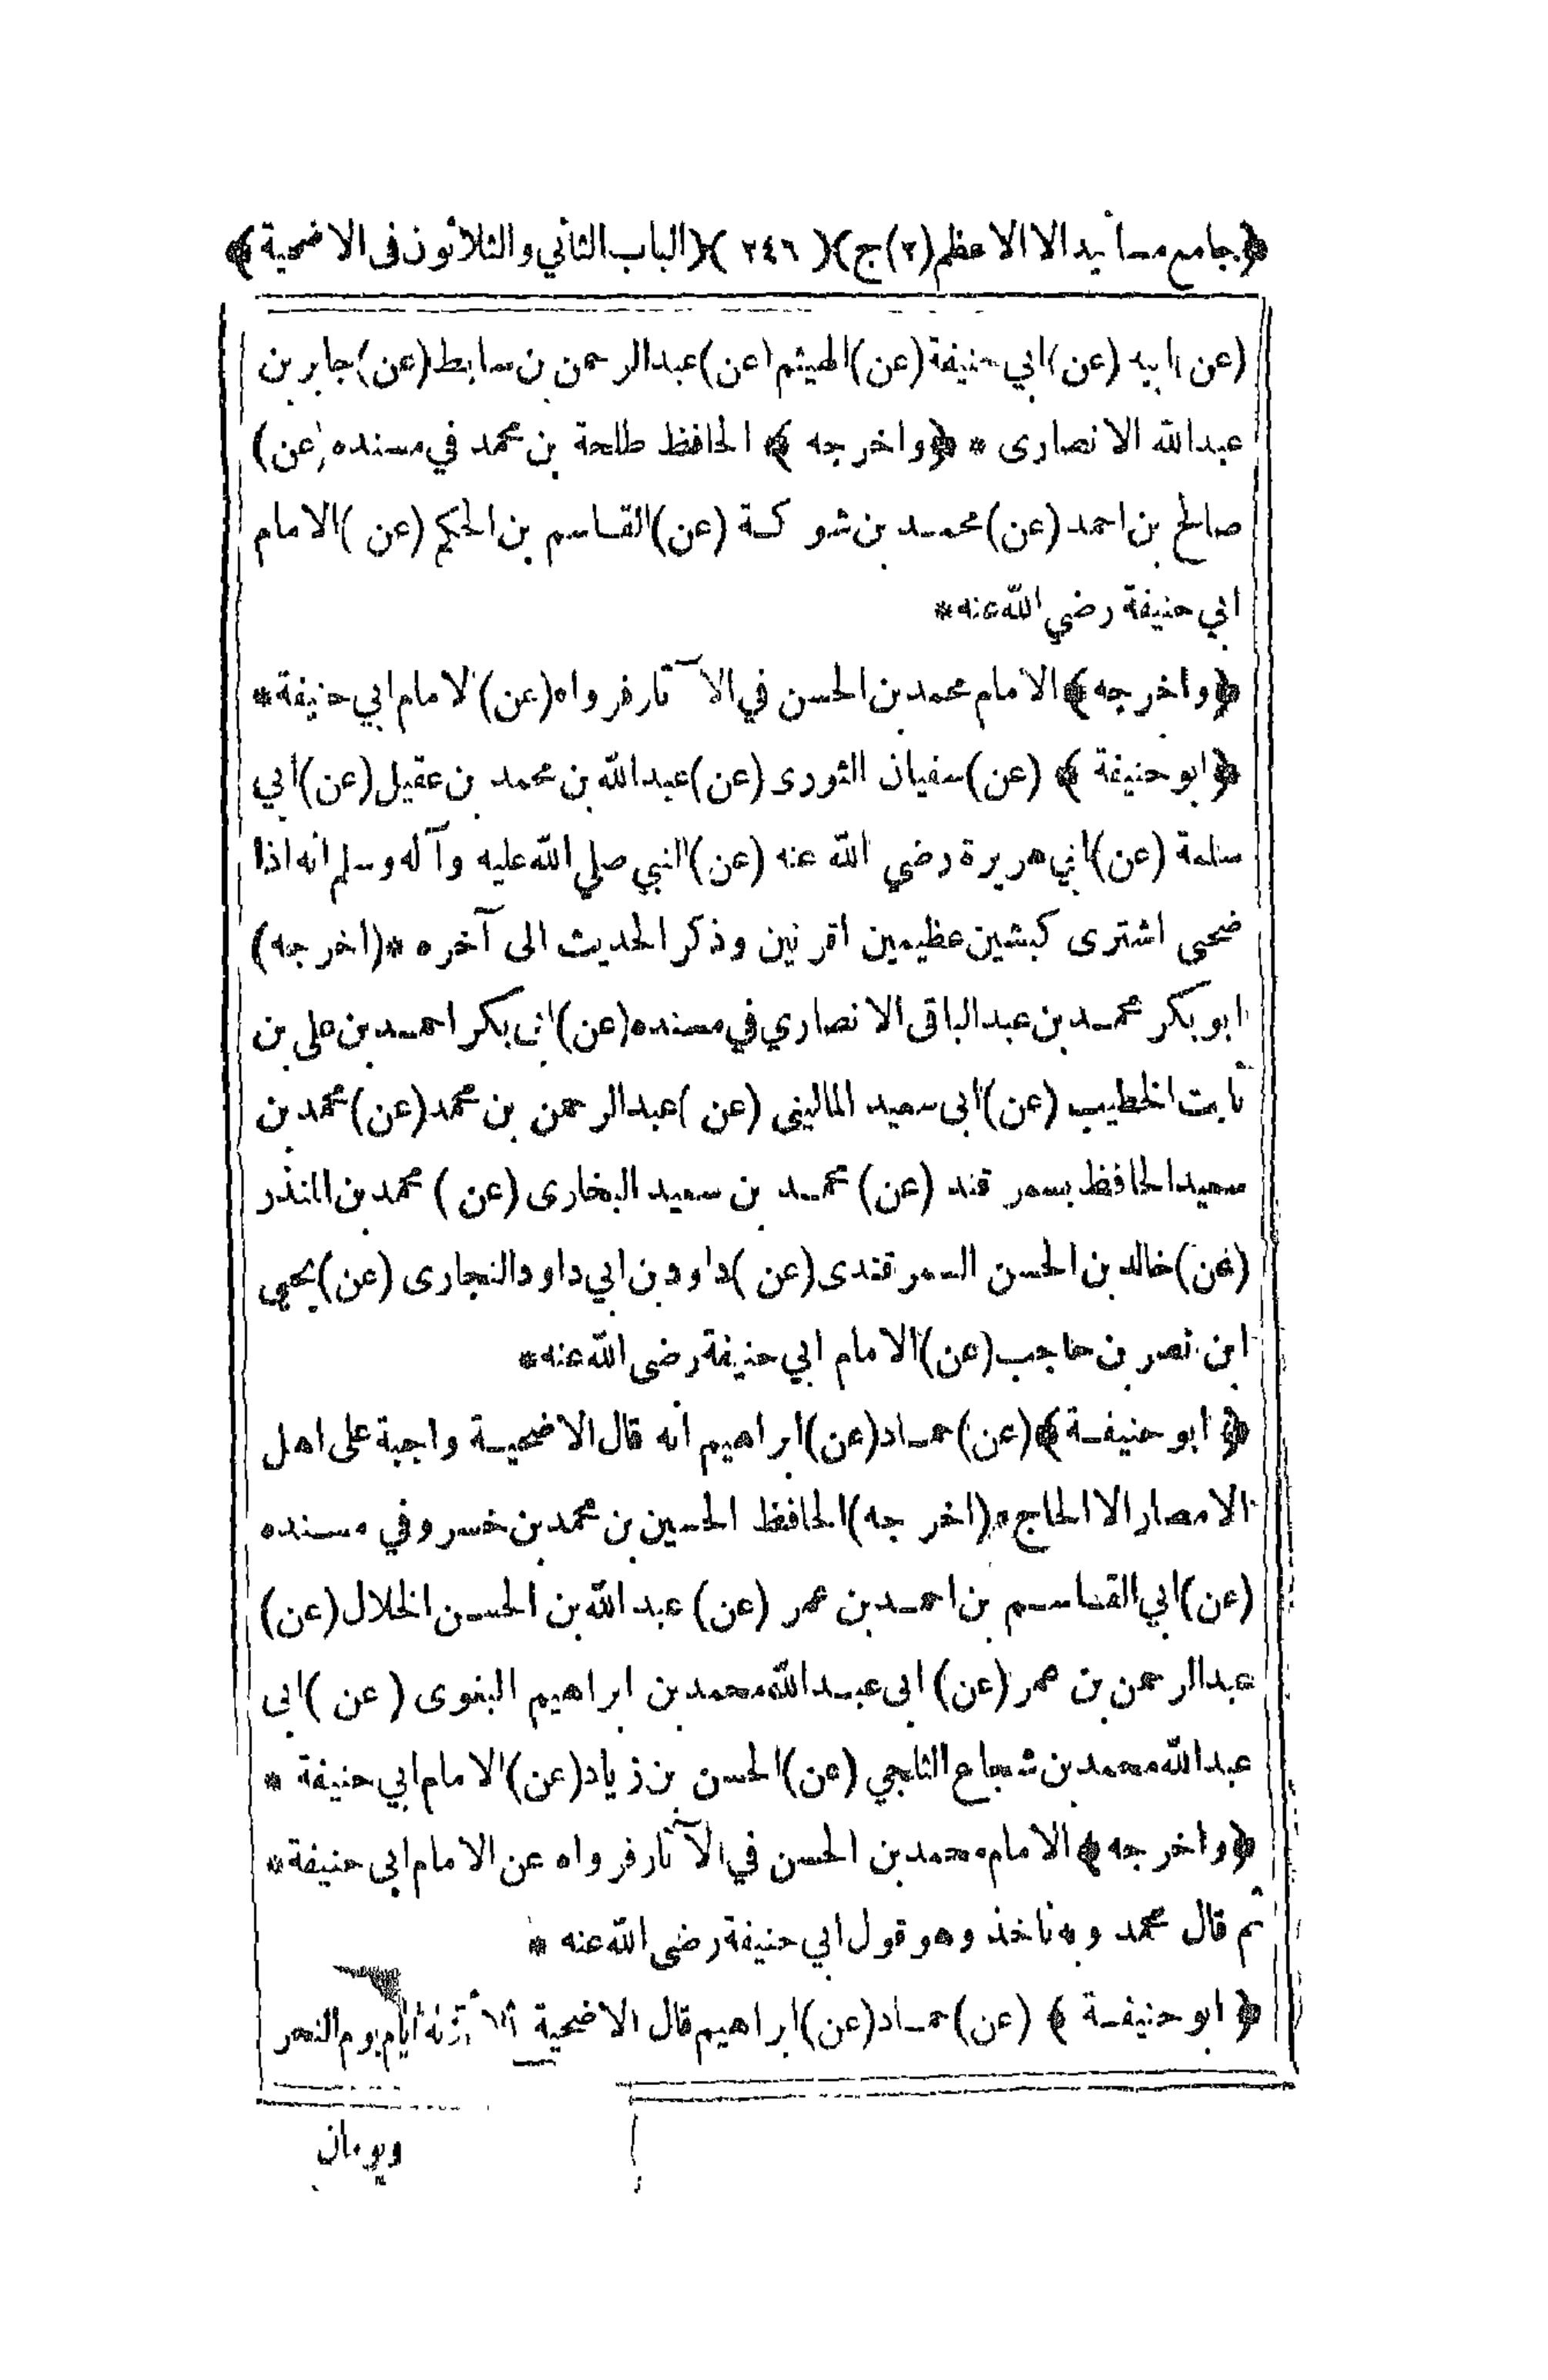 ﴿جامع مسانيد الا الاعظم (٢) ج﴾( ٢٤٦ )﴿الباب الثاني والثلاثون فى الاضحية﴾
(عن) ابيه (عن) ابي حنيفة (عن) الهيثم (عن) عبدالرحمن بن سابط (عن) جابر بن
عبدالله الانصارى * ﴿واخرجه﴾ الحافظ طلحة بن محمد في مسنده (عن)
صالح بن احمد (عن) محمد بن شوكة (عن) القاسم بن الحكم (عن) الامام
ابي حنيفة رضي الله عنه *
﴿واخرجه﴾ الامام محمد بن الحسن في الآثار فرواه (عن) الامام ابي حنيفة *
﴿ابو حنيفة﴾ (عن) سفيان الثورى (عن) عبدالله بن محمد بن عقيل (عن) أبي
سلمة (عن) ابي هريرة رضي الله عنه (عن) النبي صلي الله عليه وآله وسلم انه اذا
ضحى اشترى كبشين عظيمين اقرنين وذكر الحديث الى آخره * (اخرجه)
ابو بكر محمد بن عبدالباقى الانصاري في مسنده (عن) ابى بكر احمد بن على بن
ثابت الخطيب (عن) ابى سعيد المالينى (عن) عبدالرحمن بن محمد (عن) محمد بن
سعيد الحافظ بسمرقند (عن) محمد بن سعيد البخارى (عن) محمد بن المنذر
(عن) خالد بن الحسن السمرقندى (عن) داود بن ابي داود النجارى (عن) يحيى
ابن نصر بن حاجب (عن) الامام ابي حنيفة رضى الله عنه *
﴿ابو حنيفة﴾ (عن) حماد (عن) ابراهيم انه قال الاضحية واجبة على اهل
الامصار الا الحاج * (اخرجه) الحافظ الحسين بن محمد بن خسرو في مسنده
(عن) ابي القاسم بن احمد بن عمر (عن) عبدالله بن الحسن الخلال (عن)
عبدالرحمن بن عمر (عن) ابى عبدالله محمد بن ابراهيم البغوى (عن) ابى
عبدالله محمد بن شجاع الثلجي (عن) الحسن بن زياد (عن) الامام ابي حنيفة *
﴿واخرجه﴾ الامام محمد بن الحسن في الآثار فرواه عن الامام ابى حنيفة *
ثم قال محمد وبه ناخذ وهو قول ابي حنيفة رضى الله عنه *
﴿ابو حنيفة﴾ (عن) حماد (عن) ابراهيم قال الاضحية ثلاثة ايام يوم النحر
ويومان